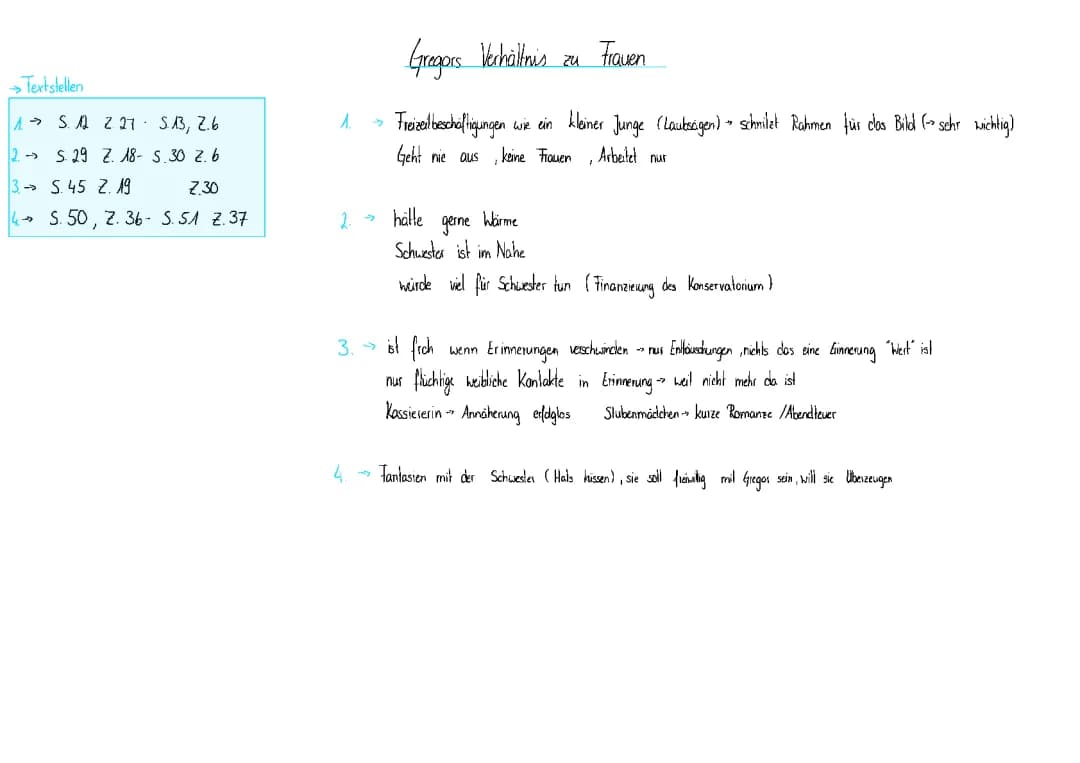 Gregors Verhältnis zu Frauen
→ Textstellen
1. → S. 12 Z 27 - S.13, Z.6
2. → S. 29 Z. 18- S.30 Z.6
3. → S. 45 Z. 19 Z.30
4. → S. 50, Z. 36- S. 51 Z. 37
1. → Freizeitbeschäftigungen wie ein kleiner Junge (Laubsägen) → schnitzt Rahmen für das Bild (→ sehr wichtig)
Geht nie aus , keine Frauen , Arbeitet nur
2. → hätte gerne Wärme
Schwester ist im Nahe
würde viel für Schwester tun (Finanzierung des Konservatorium)
3. → ist froh wenn Erinnerungen verschwinden → nur Enttäuschungen, nichts das eine Erinnerung "Wert" ist
nur flüchtige weibliche Kontakte in Erinnerung → weil nicht mehr da ist
Kassiererin → Annäherung erfolglos Stubenmädchen → kurze Romanze /Abendteuer
4. → Fantasien mit der Schwester (Hals küssen), sie soll freiwillig mit Gregor sein, will sie Überzeugen